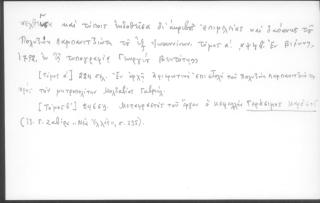 καὶ τύποις ἐκδοθεῖσα δι' ἀκριβοῦς ἐπιμελείας καὶ δαπάνης τοῦ
Πολυζώη Λαμπανιτζιώτη τοῦ ἐξ Ἰωαννίνων. τόμος α'. Ἐν Βιέννῃ,
1792, ἐν τῇ τυπογραφίᾳ Γεωργίου Βενδότη
[Τόμος α'] 224 σελ. Ἐν ἀρχῇ ἀφιερωτικὴ ἐπιστολὴ τοῦ Πολυζώη Λαμπανιτζιώτη
πρὸς τὸν μητροπολίτην Μολδαβίας
[Τόμος β'] Μεταφραστὴς τοῦ ἔργου ὁ Γεράσιμος
(Β. Γ. Ζαβίρα "Νέα Ἑλλάς", σ. 235).